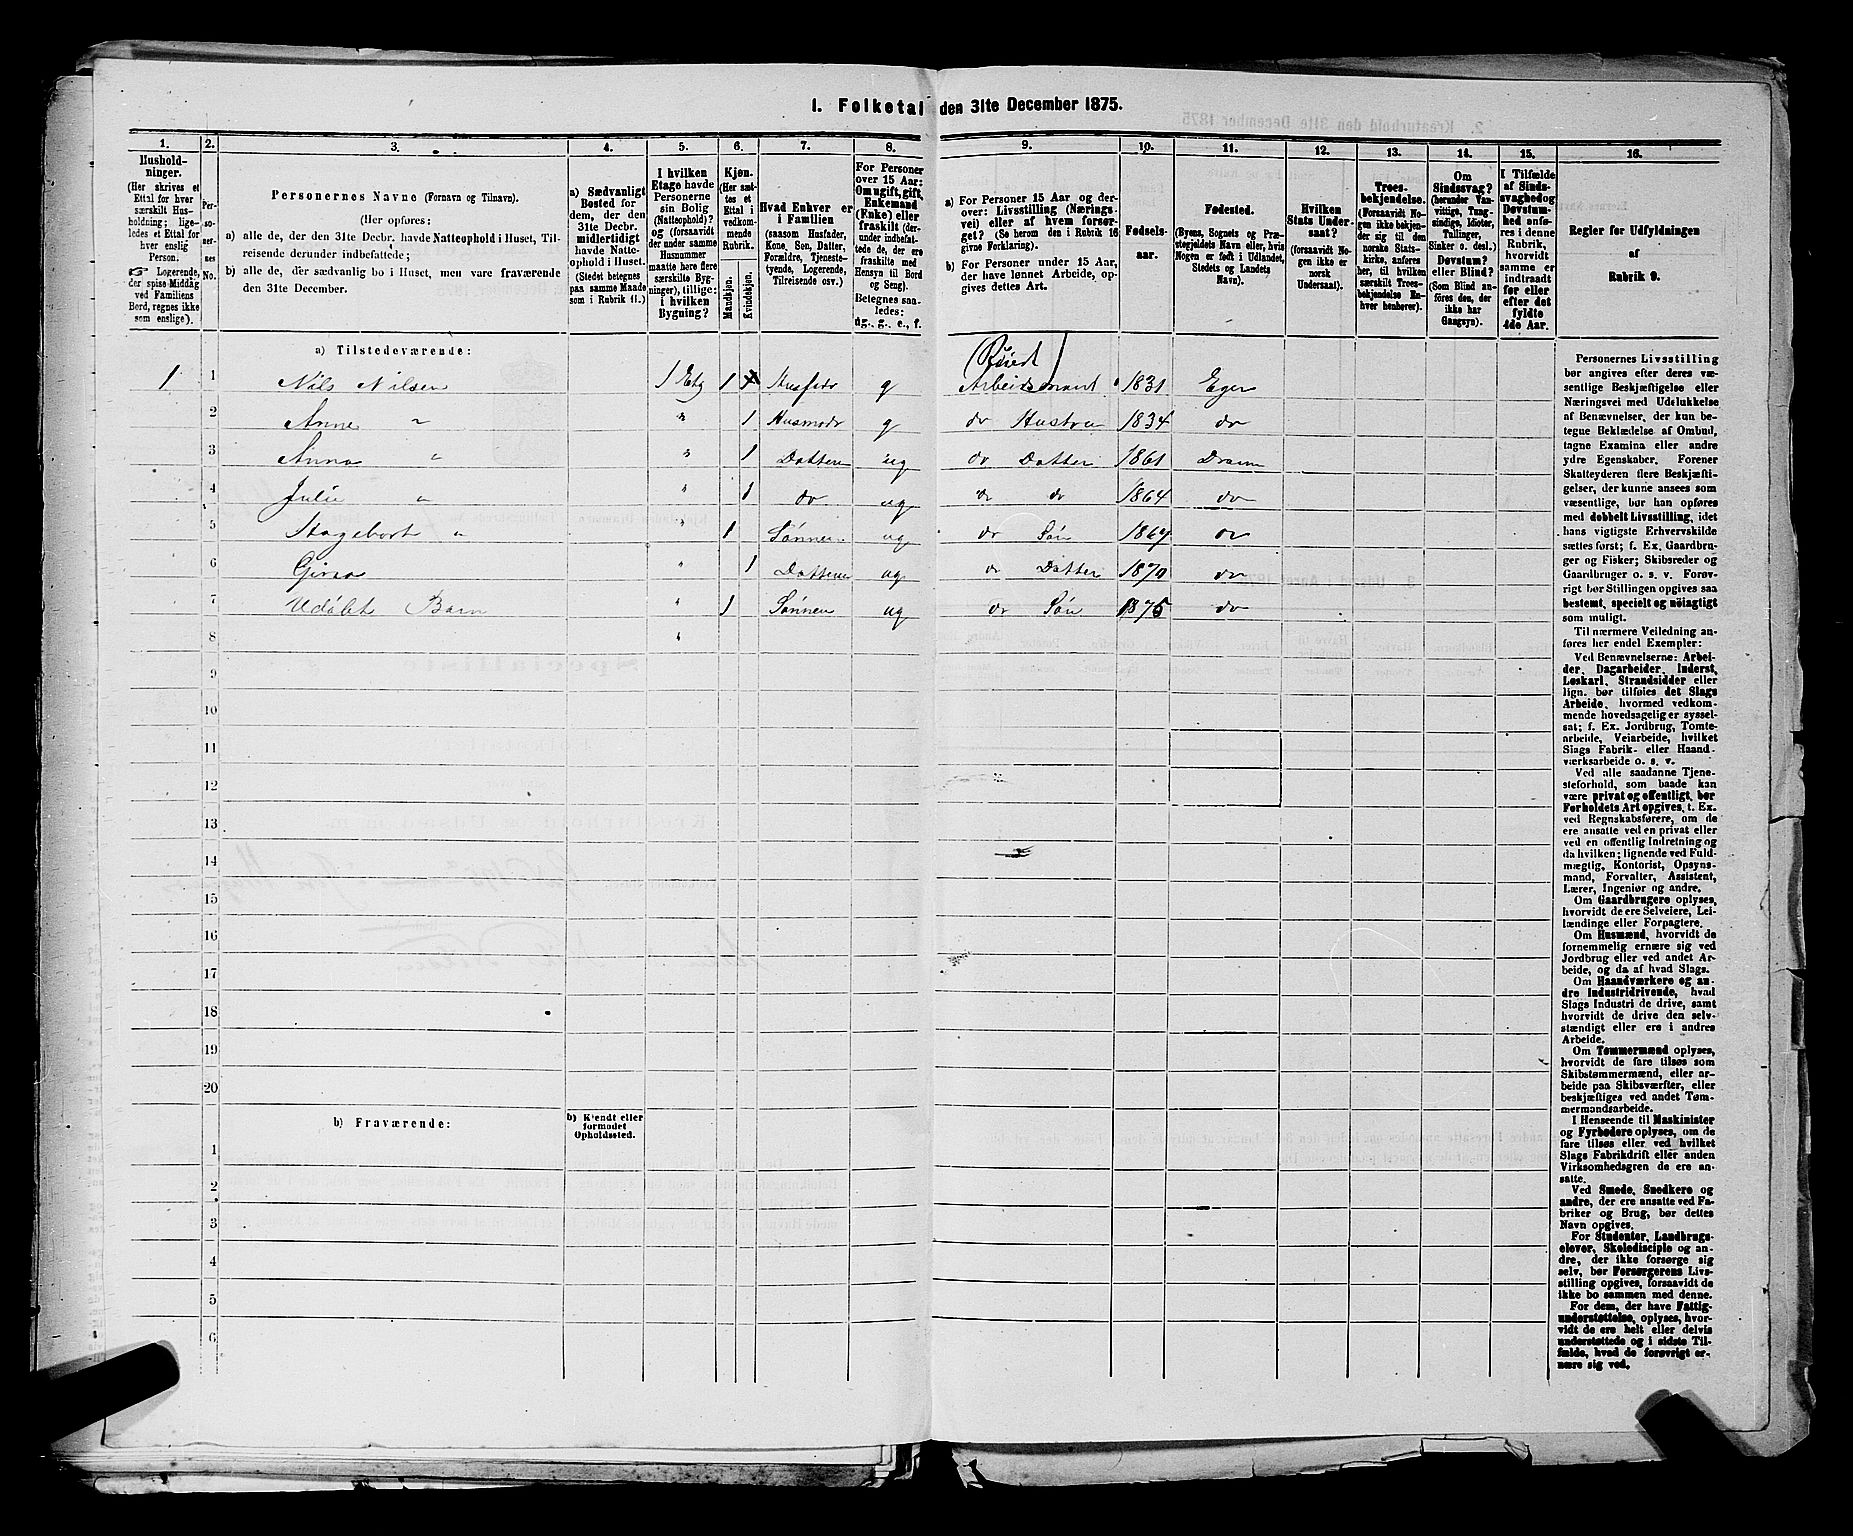 I. Folketal den 31te December 1875.
1. 2. 3. 4. 5. 6. 7. 8. 9. 10. 11. 12. 13. 14. 15. 16.
Husholdninger.
(Her skrives et
Ettal for hver
særskilt Husholdning;
ligeledes et Ettal for
hver enslig
Person.
☞ Logerende,
der spise Middag
ved Familiens
Bord, regnes ikke
som enslige).
Personernes No.
Personernes Navne (Fornavn og Tilnavn).
(Her opføres:
a) alle de, der den 31te Decbr. havde Natteophold i Huset, Tilreisende derunder indbefattede;
b) alle de, der sædvanlig bo i Huset, men vare fraværende
den 31te December.
a) Sædvanligt
Bosted for
dem, der den
31te Decbr.
midlertidigt
havde Natteophold i Huset.
(Stedet betegnes
paa samme Maade
som i Rubrik 11.)
I hvilken
Etage havde
Personerne
sin Bolig
(Natteophold)?
og (forsaavidt
der under samme
Husnummer
maatte høre flere
særskilte Bygninger), tillige:
i hvilken
Bygning?
Kjøn.
(Her sættes et
Ettal i
vedkommende
Rubrik.
Mandkjøn.
Kvindekjøn.
Hvad Enhver er
i Familien
(saasom Husfader,
Kone, Søn, Datter,
Forældre, Tjenestetyende, Logerende,
Tilreisende osv.)
For Personer
over 15 Aar:
Om ugift, gift,
Enkemand
(Enke) eller
fraskilt (derunder indbefattede de, der ere
fraskilte med
Hensyn til Bord
og Seng).
Betegnes saaledes:
ug., g., e., f.
a) For Personer 15 Aar og derover: Livsstilling (Næringsvei) eller af hvem forsørget? (Se herom den i Rubrik 16
givne Forklaring).
b) For Personer under 15 Aar,
der have lønnet Arbeide, opgives dettes Art.
Fødselsaar.
Fødested.
(Byens, Sognets og Præstegjeldets Navn eller, hvis
Nogen er født i Udlandet,
Stedets og Landets
Navn).
Hvilken
Stats Undersaat?
(forsaavidt Nogen ikke er
norsk
Undersaat).
Troesbekjendelse.
(Forsaavidt Nogen ikke bekjender sig til den
norske Statskirke, anføres
her, til hvilken
særskilt Troesbekjendelse Enhver henhører).
Om
Sindssvag?
(herunder Vanvittige, Tungsindige, Idioter,
Tullinger,
Sinker o. desl.)
Døvstum?
eller Blind?
(Som Blind anføres den, der
ikke har
Gangsyn).
I Tilfælde
af Sindssvaghed og
Døvstumhed anføres i denne
Rubrik,
hvorvidt
samme er
indtraadt
før eller
efter det
fyldte
4de Aar.
Regler for Udfyldningen
af
Rubrik 9.
a) Tilstedeværende:
1 1 Nils Nilsen 1 Etg 1 Husfadr g Arbeidsmand 1831 Eger
2 Anne " " 1 Husmodr g do Hustru 1834 do
3 Anna " " 1 Datter ug do Datter 1861 Dram
4 Julie " " 1 do ug do do 1864 do
5 " " 1 Sønnen ug do Søn 1867 do
6 " 1 Datteren ug do Datter 1870 do
7 Udøbt Barn " 1 Sønnen ug do Søn 1875 do
8 "
9
10
11
12
13
14
15
16
17
18
19
20
b) Fraværende:
b) Kjendt eller
formodet
Opholdssted.
1
2
3
4
5
6
Personernes Livsstilling
bør angives efter deres væsentlige Beskjæftigelse eller
Næringsvei med Udelukkelse
af Benævnelser, der kun betegne Beklædelse af Ombud,
tagne Examina eller andre
ydre Egenskaber. Forener
Skatteyderen flere Beskjæftigelser, der kunne ansees som
væsentlige, bør han opføres
med dobbelt Livsstilling, idet
hans vigtigste Erhvervskilde
sættes først; f. Ex. Gaardbruger og Fisker; Skibsreder og
Gaardbruger o. s. v. Forøvrigt bør Stillingen opgives saa
bestemt, specielt og nöiagtigt
som muligt.
Til nærmere Veiledning anføres her endel Exempler:
Ved Benævnelserne: Arbeider, Dagarbeider, Inderst,
Løskarl, Strandsidder eller
lign. bør tilføies det Slags
Arbeide, hvormed vedkommende hovedsagelig er sysselsat; f. Ex. Jordbrug, Tomtearbeide, Veiarbeide, hvilket
Slags Fabrik- eller Haandværksarbeide o. s. v.
Ved alle saadanne Tjenesteforhold, som baade kan
være privat og offentligt, bør
Forholdets Art opgives, t. Ex.
ved Regnskabsførere, om de
ere ansatte ved en privat eller
ved en offentlig Indretning og
da hvilken; lignende ved Fuldmægtig, Kontorist, Opsynsmand, Forvalter, Assistent,
Lærer, Ingeniør og andre.
Om Gaardbrugere oplyses,
hvorvidt de ere Selveiere, Leilændinge eller Forpagtere.
Om Husmænd, hvorvidt de
fornemmelig ernære sig ved
Jordbrug eller ved andet Arbeide, og da af hvad Slags.
Om Haandværkere og andre Industridrivende, hvad
Slags Industri de drive, samt
hvorvidt de drive den selvstændigt eller ere i andres
Arbeide.
Om Tømmermænd oplyses,
hvorvidt de fare tilsøs som
Skibstømmermænd, eller arbeide paa Skibsværfter, eller
beskjæftiges ved andet Tømmermandsarbeide.
I Henseende til Maskinister
og Fyrbødere oplyses, om de
fare tilsøs eller ved hvilket
Slags Fabrikdrift eller anden
Virksomhedsgren de ere ansatte.
Ved Smede, Snedkere og
andre, der ere ansatte ved Fabriker og Brug, bør dettes
Navn opgives.
For Studenter, Landbrugselever, Skoledisciple og andre, der ikke forsørge sig
selv, bør Forsørgerens Livsstilling opgives, forsaavidt de
ikke bo sammen med denne.
For dem, der have Fattigunderstøttelse, oplyses, hvorvidt de ere helt eller delvis
understøttede og i sidste Tilfælde, hvad de forøvrigt ernære sig ved.